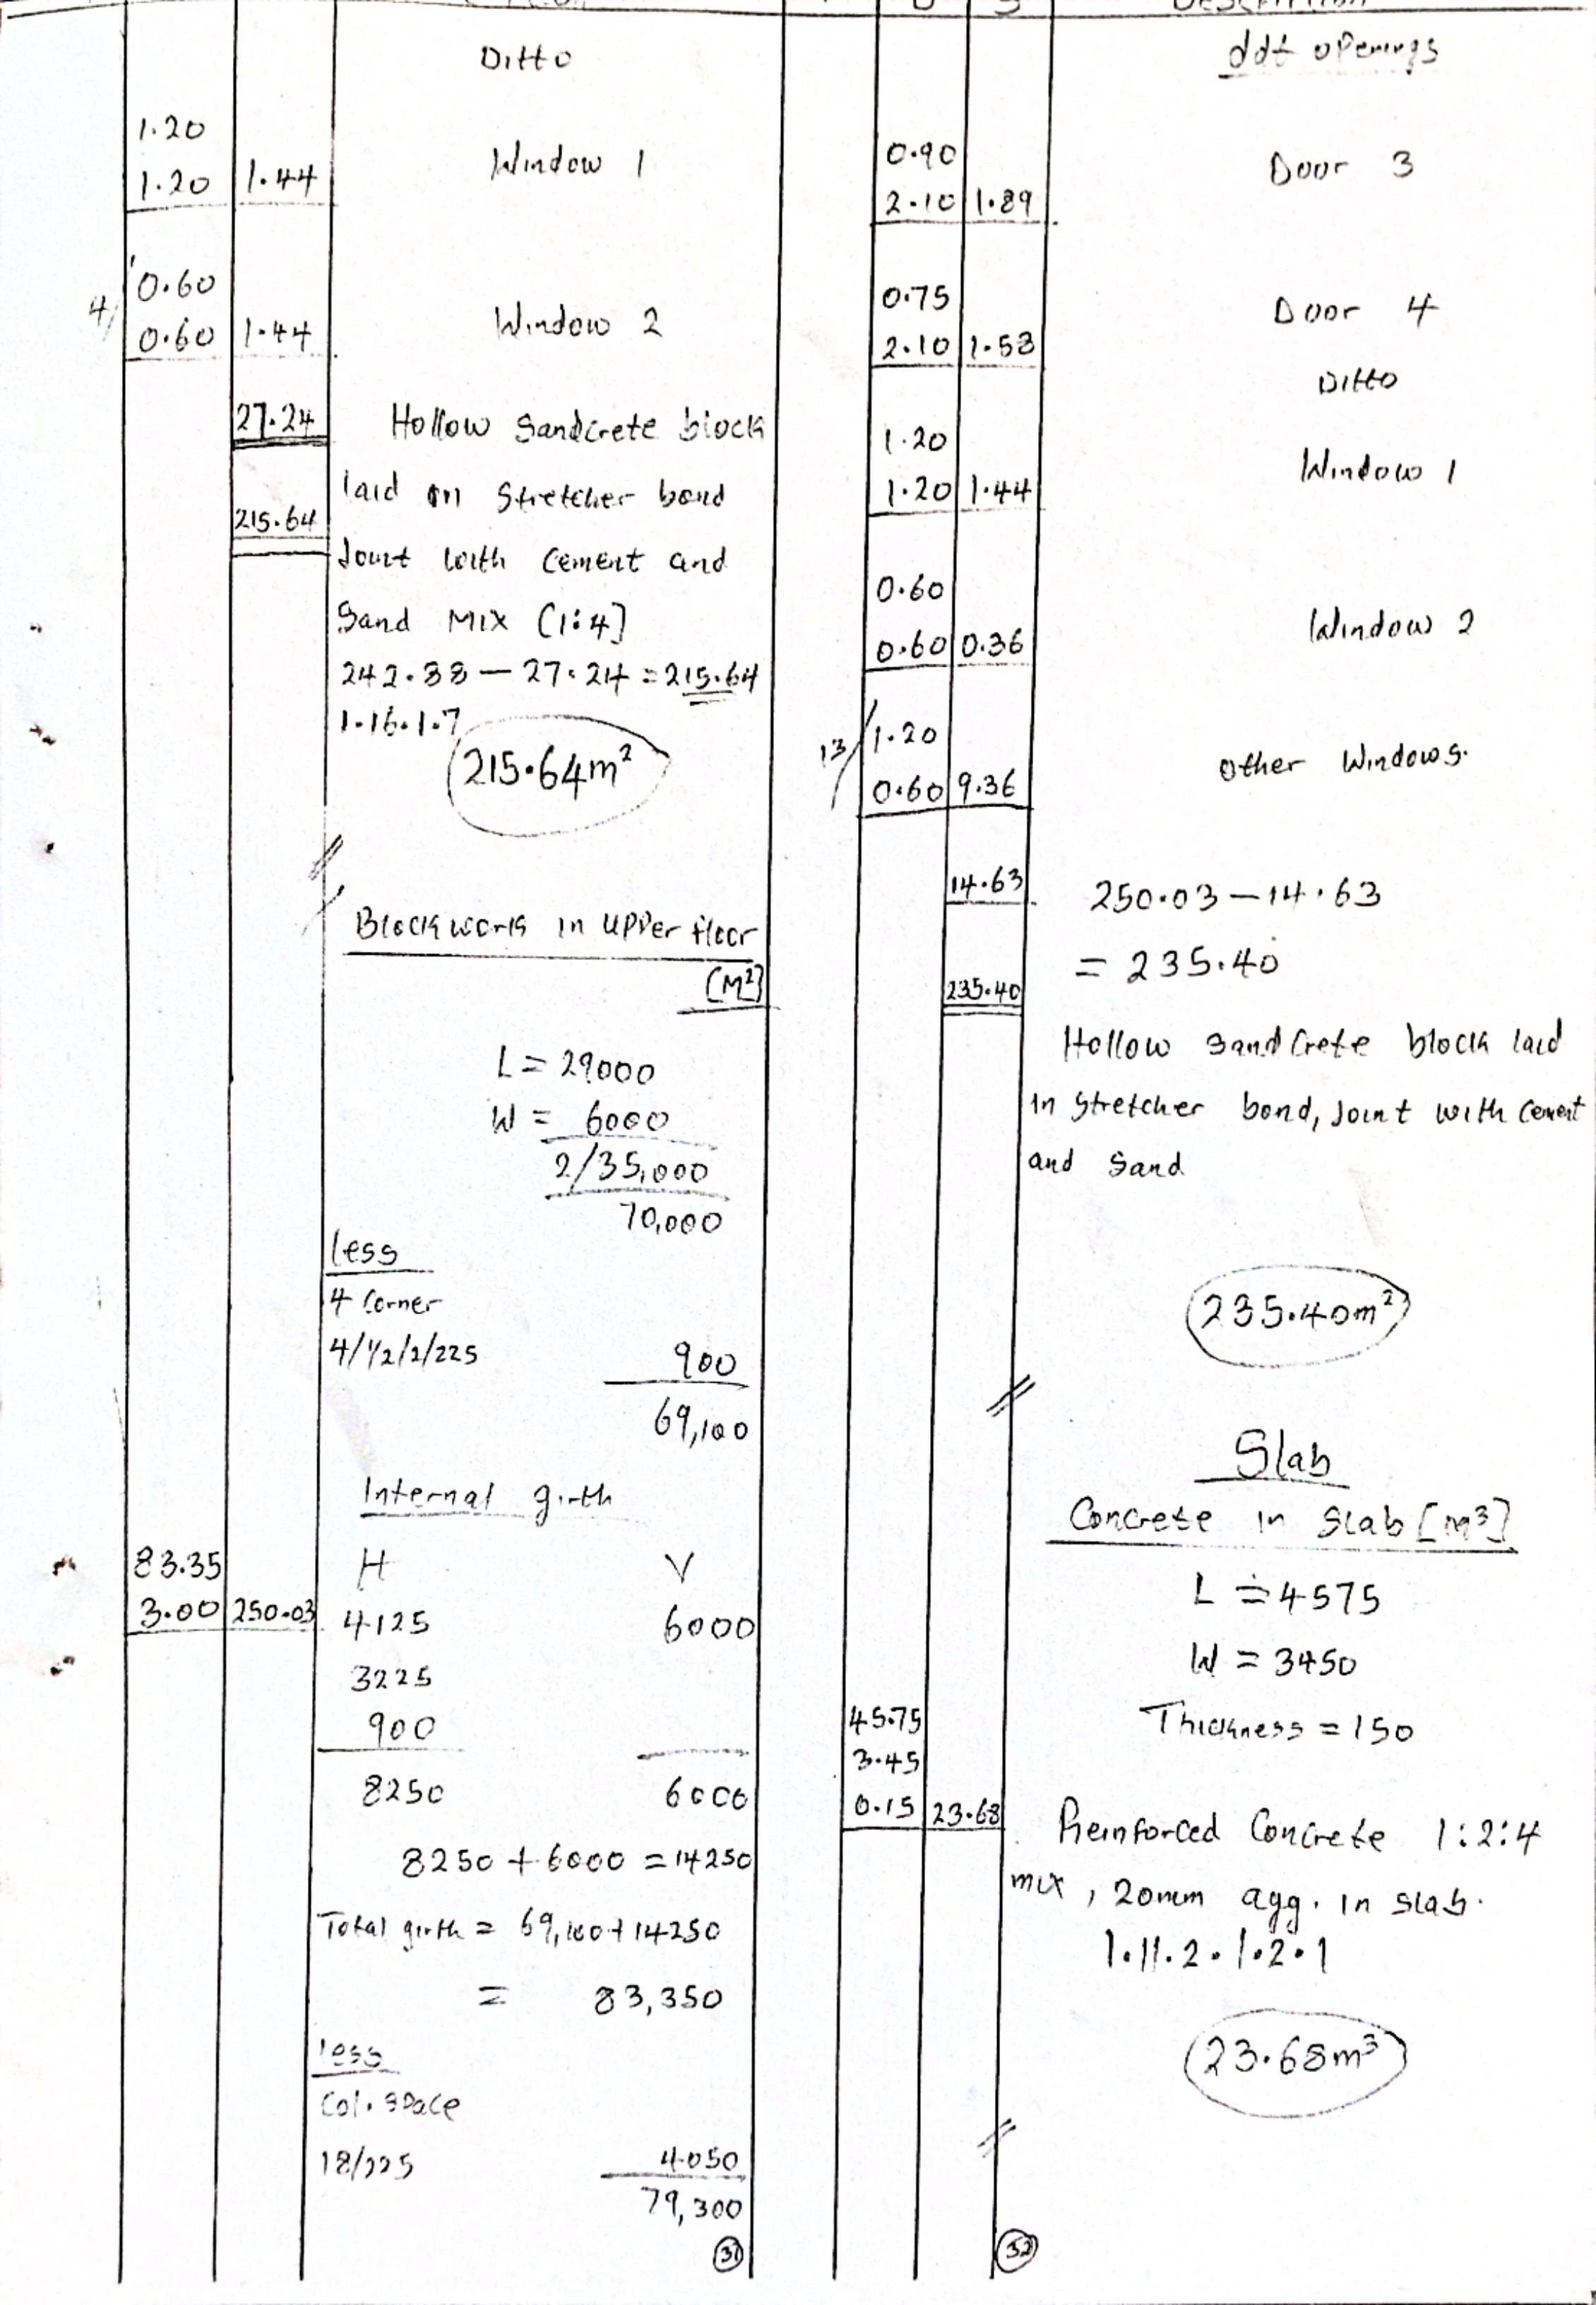 Ditto
1.20
1.20 1.44 Window 1
4/ 0.60
0.60 1.44 Window 2
27.24 Hollow Sandcrete block
laid in Stretcher bond
215.64
Joint with Cement and
Sand Mix (1:4]
242.88 — 27.24 = 215.64
1.16.1.7
215.64m²
Blockwork in Upper floor
[M²]
L = 29000
W = 6000
2/35,000
70,000
less
4 Corner
4/½/2/225 900
69,100
Internal girth
83.35 H V
3.00 250.03 4125 6000
3225
900
8250 6000
8250 + 6000 = 14250
Total girth = 69,100 + 14250
= 83,350
less
Col. Space
18/225 4050
79,300
31
ddt openings
0.90
2.10 1.89 Door 3
0.75
2.10 1.58 Door 4
Ditto
1.20
1.20 1.44 Window 1
0.60
0.60 0.36 Window 2
13/ 1.20
0.60 9.36 Other Windows.
14.63 250.03 — 14.63
= 235.40
235.40
Hollow Sandcrete block laid
in Stretcher bond, Joint with Cement
and Sand
235.40m²
Slab
Concrete in Slab [m³]
L = 4575
W = 3450
45.75 Thickness = 150
3.45
0.15 23.68 Reinforced Concrete 1:2:4
mix, 20mm agg. in slab.
1.11.2.1.2.1
23.68m³
32